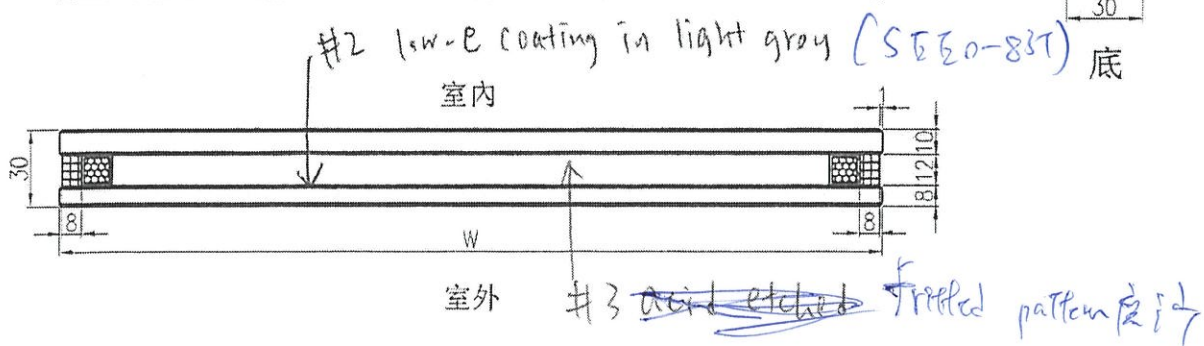 30
#2 low-e coating in light grey (SEE0-83T)
底
室內
1
30
10
12
8
8
8
W
室外
#3 acid etched Fritted pattern